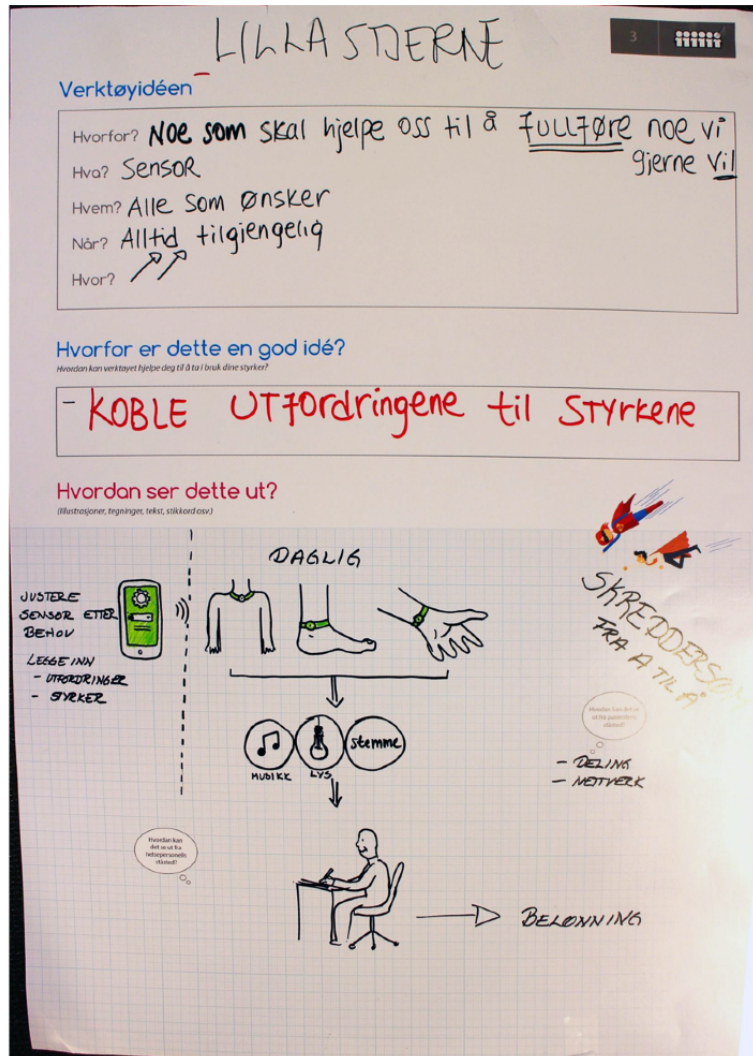 LILLA STJERNE
3
Verktøyidéen
Hvorfor? NOE som skal hjelpe oss til å FULLFØRE noe vi
gjerne vil
Hva? SENSOR
Hvem? Alle som ønsker
Når? Alltid tilgjengelig
Hvor?
Hvorfor er dette en god idé?
Hvordan kan verktøyet hjelpe deg til å ta i bruk dine styrker?
- KOBLE UTFordringene til STYrkene
Hvordan ser dette ut?
(Illustrasjoner, tegninger, tekst, stikkord osv.)
DAGLIG
JUSTERE
SENSOR ETTER
BEHOV
LEGGE INN
- UTFORDRINGER
- STYRKER
SKREDDERSØM
FRA A TIL Å
stemme
MUSIKK
LYS
Hvordan kan det se
ut fra pasientens
ståsted?
- DELING
- NETTVERK
Hvordan kan
det se ut fra
helsepersonells
ståsted?
BELØNNING